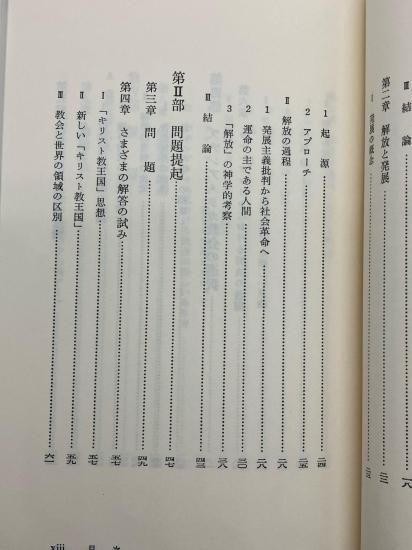 Ⅲ 結論 一八
第二章 解放と発展 二三
Ⅰ 発展の概念 二三
1 起源 二四
2 アプローチ 二五
Ⅱ 解放の過程 二八
1 発展主義批判から社会革命へ 二八
2 運命の主である人間 三〇
3 「解放」の神学的考察 三八
Ⅲ 結論 四三
第Ⅱ部 問題提起 四七
第三章 問題 四九
第四章 さまざまの解答の試み 五七
Ⅰ 「キリスト教王国」思想 五七
Ⅱ 新しい「キリスト教王国」 五九
Ⅲ 教会と世界の領域の区別 六一
xiii 目次